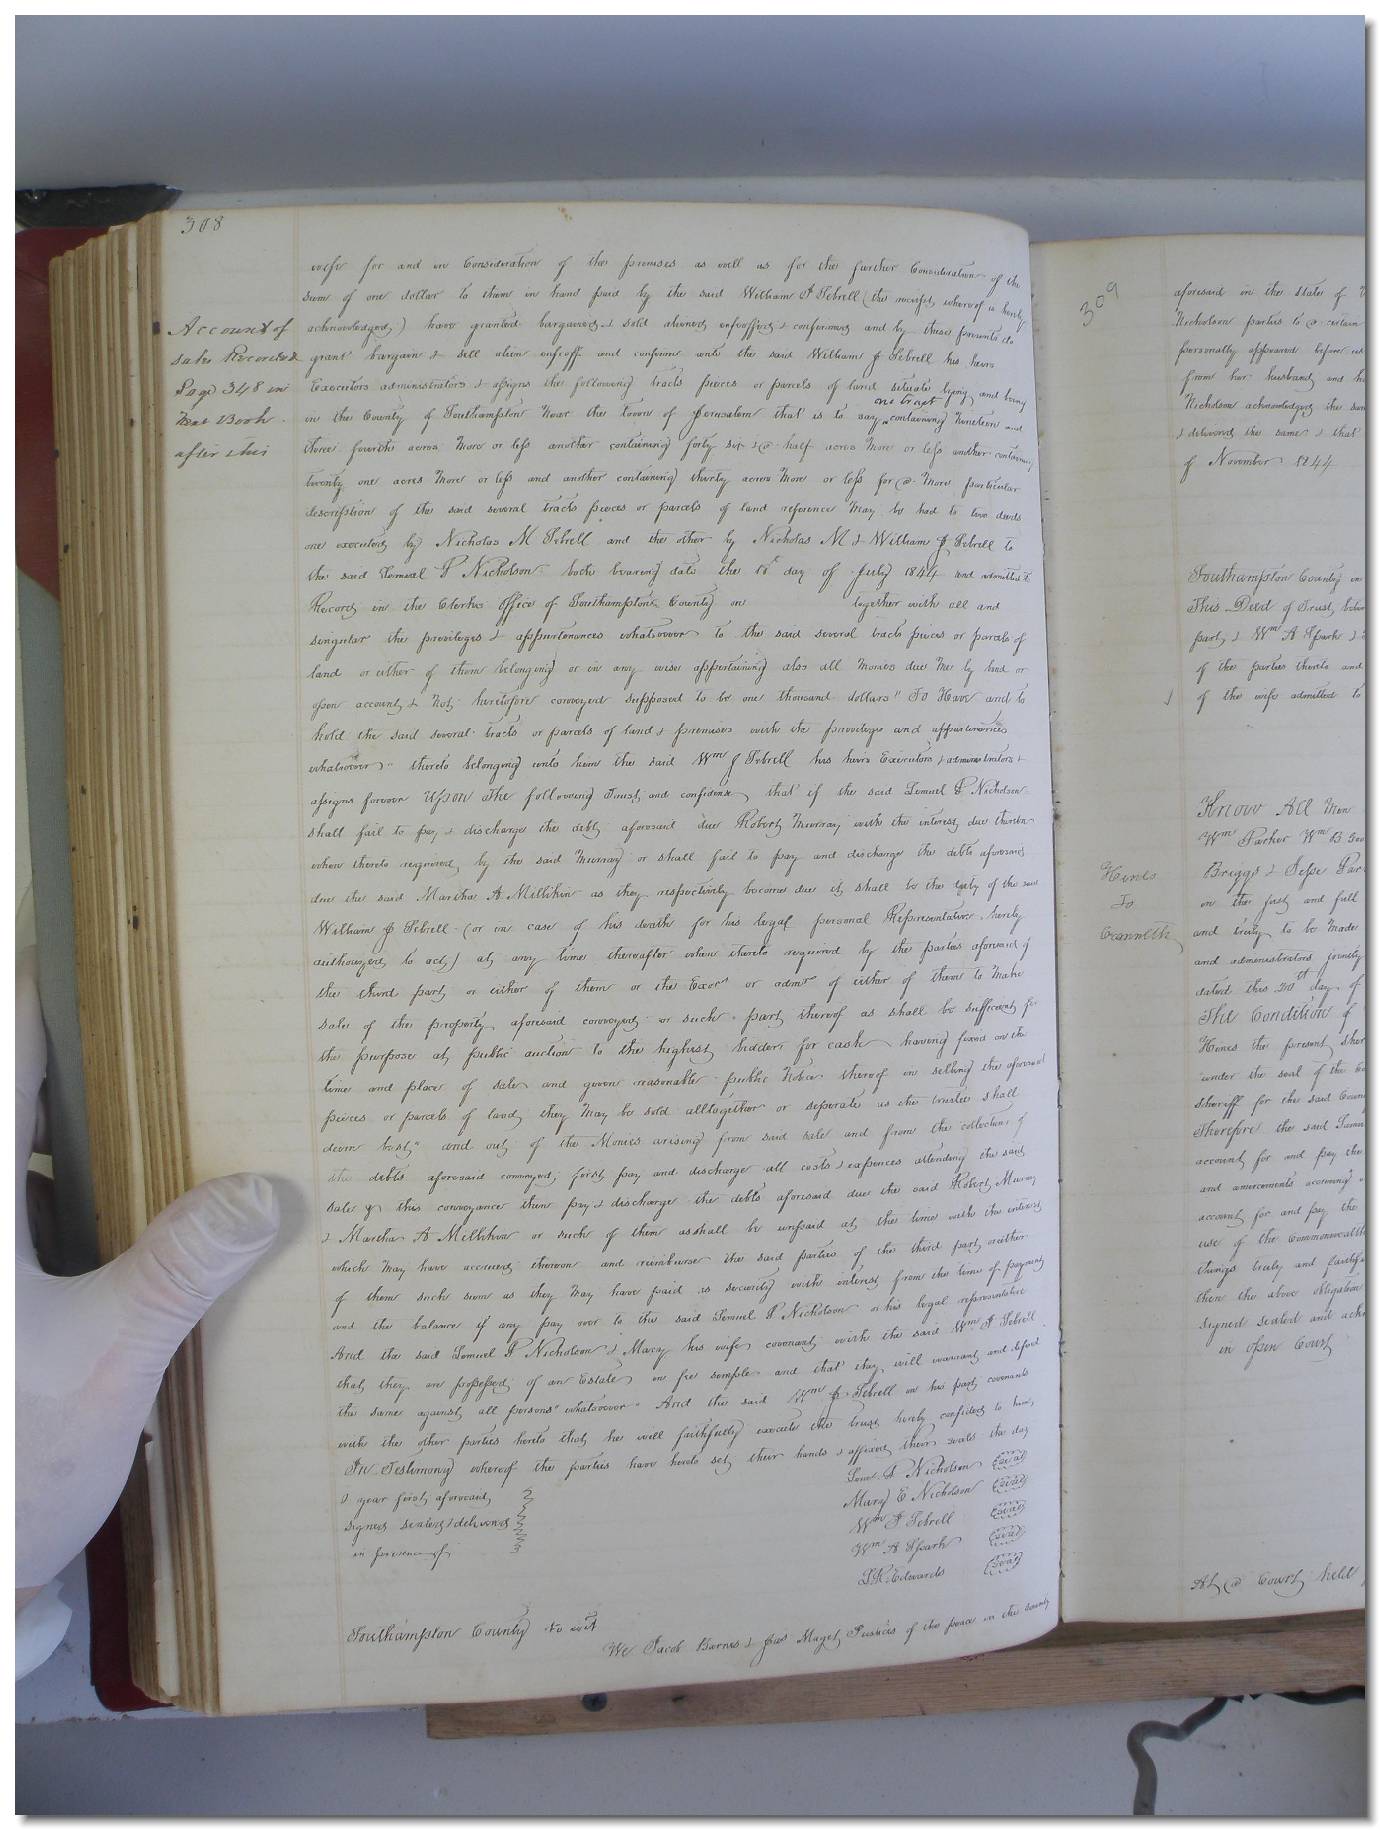 308
Account of
sales Recorded
Page 348 in
Next Book
after this
wife for and in Consideration of the premises as well as for the further Consideration of the
sum of one dollar to them in hand paid by the said William J Sebrell (the receipt whereof is hereby
acknowledged) have granted bargained & sold aliened enfeoffed & confirmed and by these presents do
grant bargain & sell alien enfeoff and confirm unto the said William J Sebrell his heirs
Executors administrators & assigns the following tracts pieces or parcels of land situate lying and being
in the County of Southampton Near the town of Jerusalem that is to say one tract containing Nineteen and
three fourths acres More or less another containing forty six & a half acres More or less another containing
twenty one acres More or less and another containing thirty acres More or less for a More particular
description of the said several tracts pieces or parcels of land reference May be had to two deeds
one executed by Nicholas M Sebrell and the other by Nicholas M & William J Sebrell to
the said Lemuel P Nicholson both bearing date the 18th day of July 1844 and admitted to
Record in the Clerks Office of Southampton County on together with all and
singular the privileges & appurtenances whatsoever to the said several tracts pieces or parcels of
land or either of them belonging or in any wise appertaining also all Monies due Me by bond or
open account & Not heretofore conveyed supposed to be one thousand dollars" To Have and to
hold the said several tracts or parcels of land & premises with the privileges and appurtenances
whatsoever" thereto belonging unto him the said Wm J Sebrell his heirs Executors & administrators &
assigns forever Upon The following Trust and confidence, that if the said Lemuel P Nicholson
shall fail to pay & discharge the debt aforesaid due Robert Murray with the interest due thereon
when thereto required, by the said Murray or shall fail to pay and discharge the debts aforesaid
due the said Martha A Millikin as they respectively become due it shall be the duty of the said
William J Sebrell (or in case of his death for his legal personal Representative hereby
authorized to act) at any time thereafter when thereto required by the parties aforesaid of
the third part or either of them or the Exors or admr of either of them to Make
sale of the property aforesaid conveyed or such part thereof as shall be sufficient for
the purpose at public auction to the highest bidder for cash having fixed on the
time and place of sale and given reasonable public Notice thereof in selling the aforesaid
pieces or parcels of land they May be sold alltogether or seperate as the trustee shall
deem best" and out of the Monies arising from said sale and from the collection of
the debts aforesaid conveyed, first pay and discharge all costs & expences attending the said
sale & this conveyance then pay & discharge the debts aforesaid due the said Robert Murray
& Martha A Millikin or such of them as shall be unpaid at the time with the interest
which May have accrued thereon and reimburse the said parties of the third part, or either
of them such sum as they May have paid as security with interest from the time of payment
and the balance if any pay over to the said Lemuel P Nicholson or his legal representative
And the said Lemuel P Nicholson & Mary his wife covenant with the said Wm J Sebrell
that they are possessed of an Estate in fee simple and that they will warrant and defend
the same against all persons "whatsoever" And the said Wm J Sebrell on his part covenants
with the other parties hereto that he will faithfully execute the trust hereby confided to him
In Testimony whereof the parties have hereto set their hands & affixed their seals the day
& year first aforesaid
signed sealed & delivered
in presence of
Lem P Nicholson Seal
Mary E Nicholson Seal
Wm J Sebrell Seal
Wm A Spark Seal
L R Edwards Seal
Southampton County to wit
We Jacob Barnes & Jas Maget Justices of the peace in the County
309
aforesaid in the state of
Nicholson parties to a certain
personally appeared before
from her husband and
Nicholson acknowledged the same
& delivered the same & that
of November 1844
Southampton County
This Deed of Trust,
part & Wm A Spark &
of the parties thereto and
of the wife admitted to
Hines
To
Commonwlth
Know All Men
Wm Parker Wm B
Briggs & Jesse
on the just and full
and truly to be Made
and administrators jointly
dated this 20th day of
The Condition of
Hines the present
under the seal of the
sheriff for the said
Therefore the said
account for and pay the
and amercements accruing
account for and pay the
use of the Commonwealth
things truly and
then the above obligation
Signed sealed and
in open Court
At a Court held